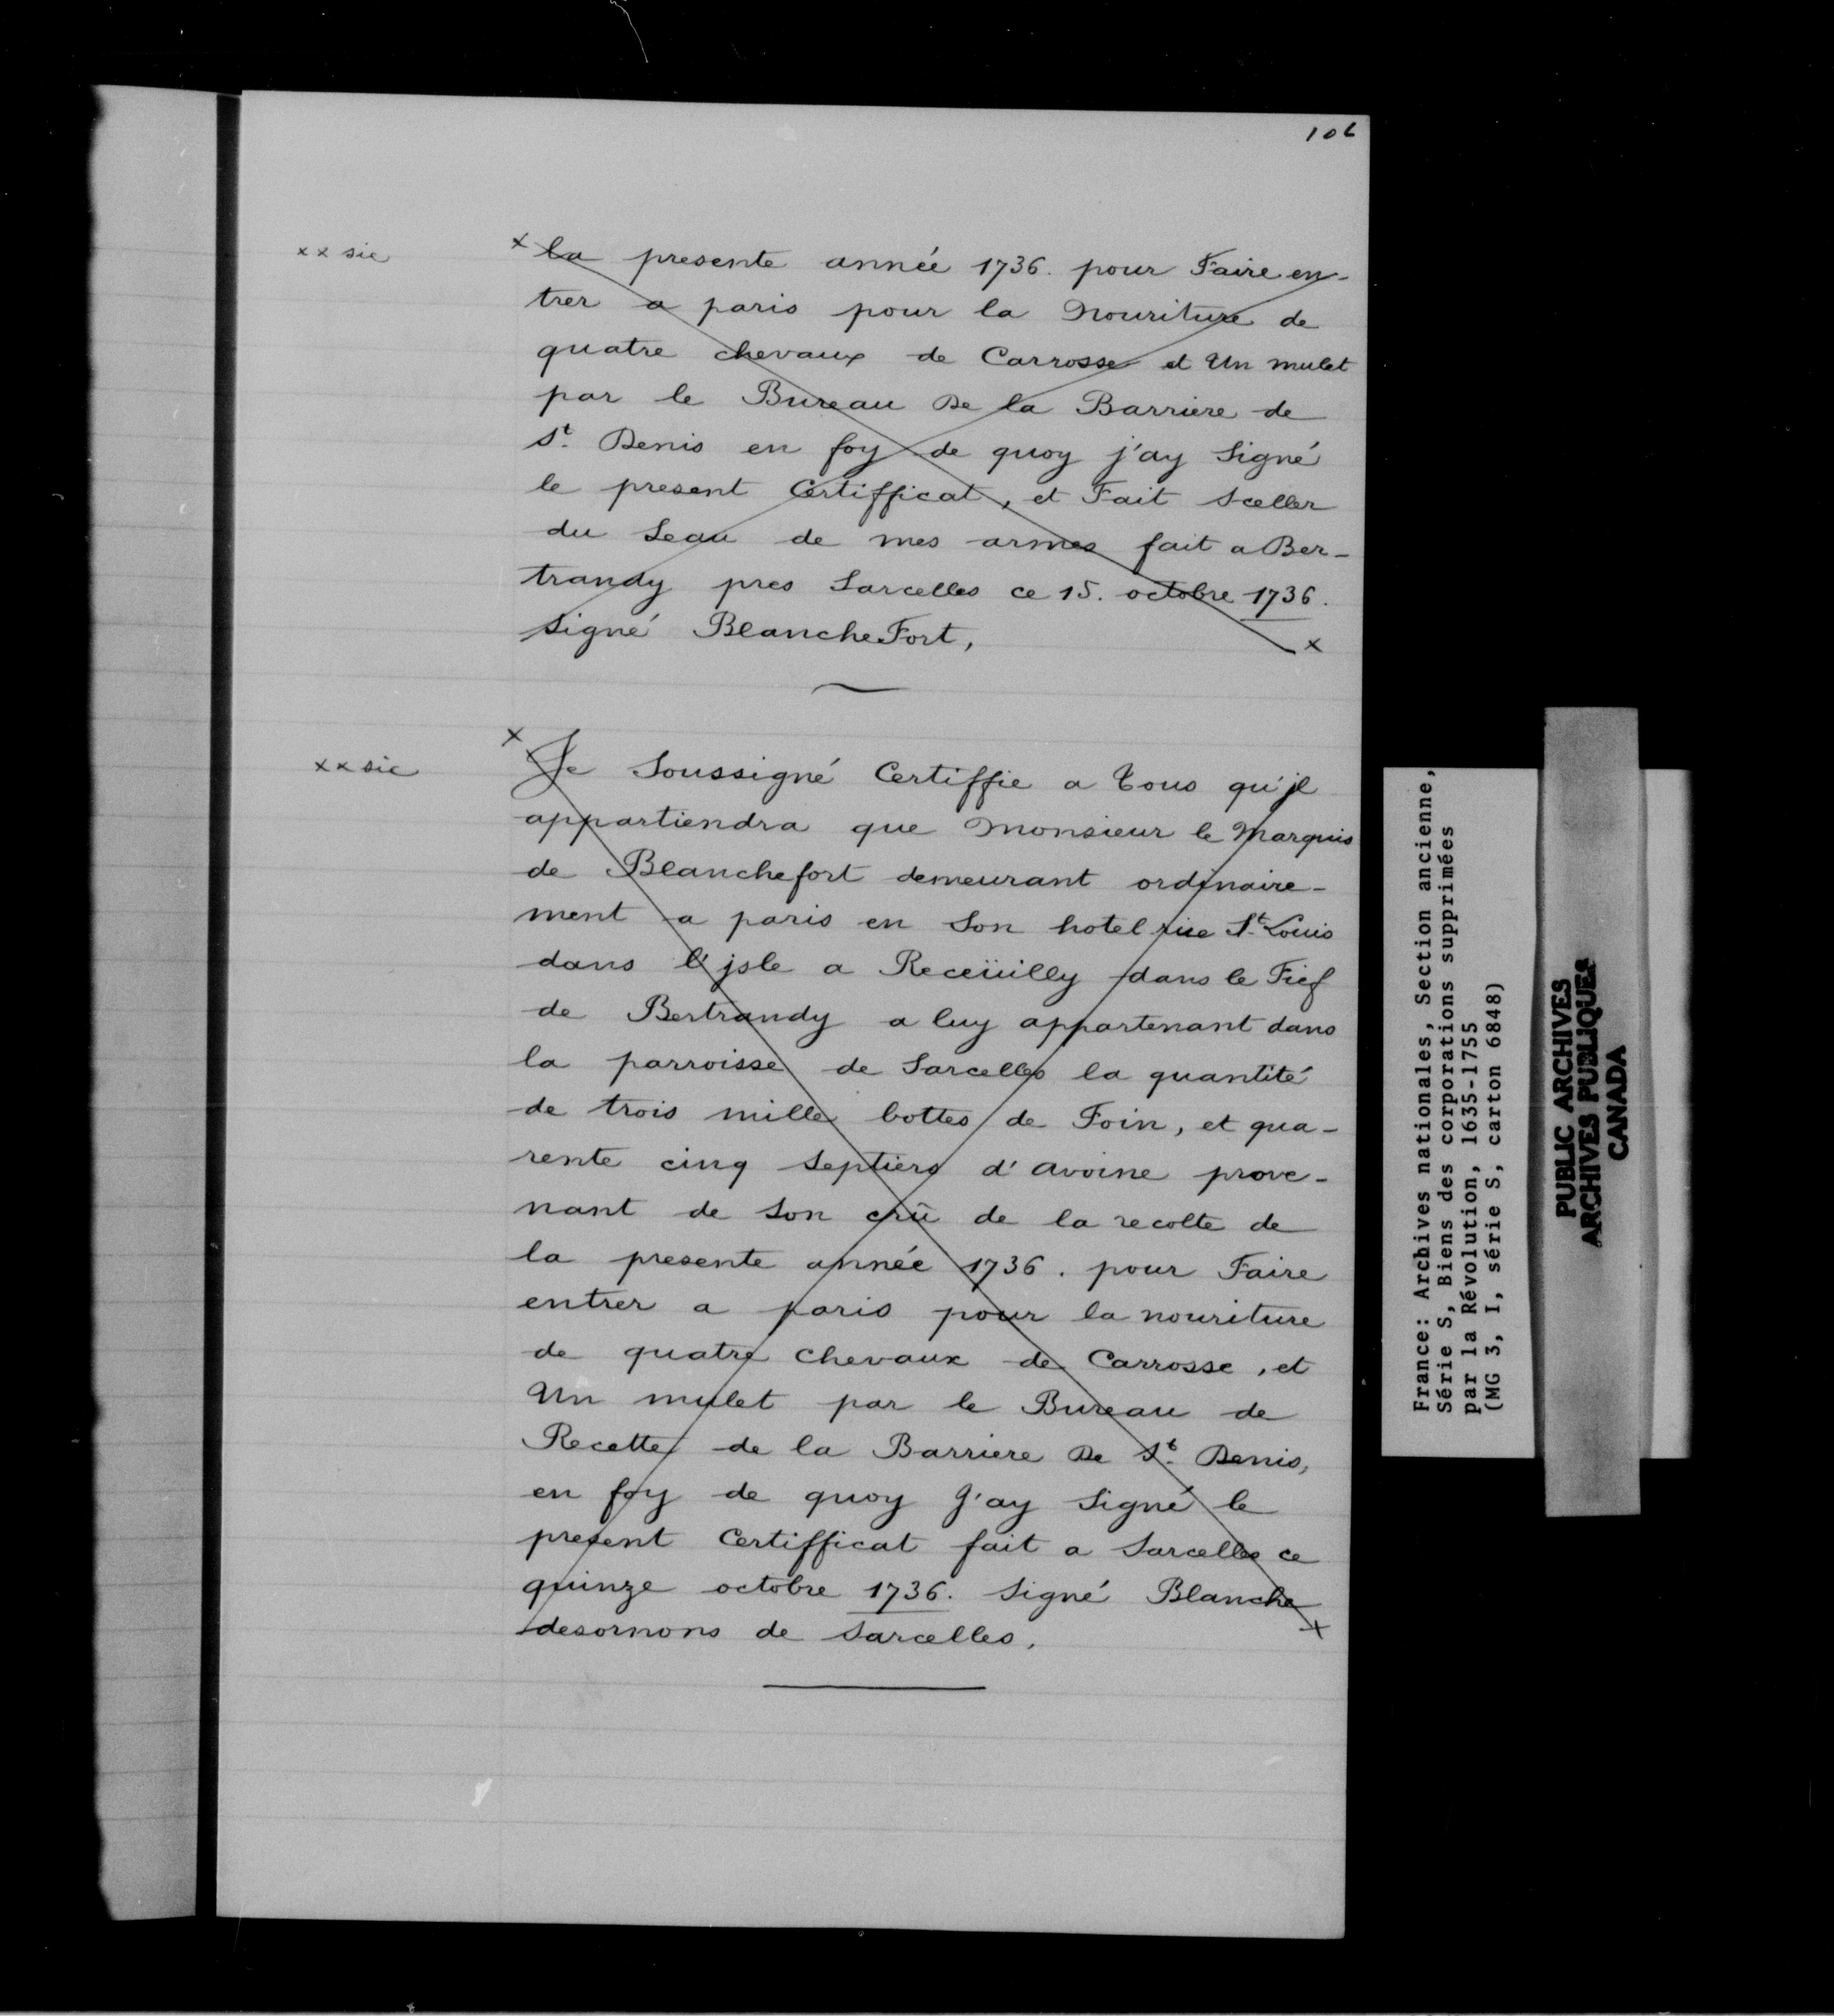 106
xx sic
x la presente année 1736. pour Faire en-
trer a paris pour la Nouriture de
quatre chevaux de Carrosse et Un mulet
par le Bureau De la Barriere de
St. Denis en foy de quoy j'ay Signé
le present Certifficat, et Fait Sceller
du Seau de mes armes fait a Ber-
trandy pres Sarcelles ce 15. octobre 1736.
Signé BlancheFort,
x
xx sic
x
Je Soussigné Certiffie a Tous qu'jl
appartiendra que Monsieur le Marquis
de Blanchefort demeurant ordinaire-
ment a paris en Son hotel rue St. Louis
dans l'jsle a Receüilly dans le Fief
de Bertrandy a luy appartenant dans
la parroisse de Sarcelles la quantité
de trois mille bottes de Foin, et qua-
rente cinq Septiers d'avoine prove-
nant de Son crû de la recolte de
la presente année 1736. pour Faire
entrer a paris pour la nouriture
de quatre Chevaux de Carrosse, et
Un mulet par le Bureau de
Recette de la Barriere De St. Denis,
en foy de quoy J'ay Signé le
present Certifficat fait a Sarcelles ce
quinze octobre 1736. Signé Blanche
desornons de Sarcelles.
x
France: Archives nationales, Section ancienne,
Série S, Biens des corporations supprimées
par la Révolution, 1635-1755
(MG 3, I, série S, carton 6848)
PUBLIC ARCHIVES
ARCHIVES PUBLIQUES
CANADA